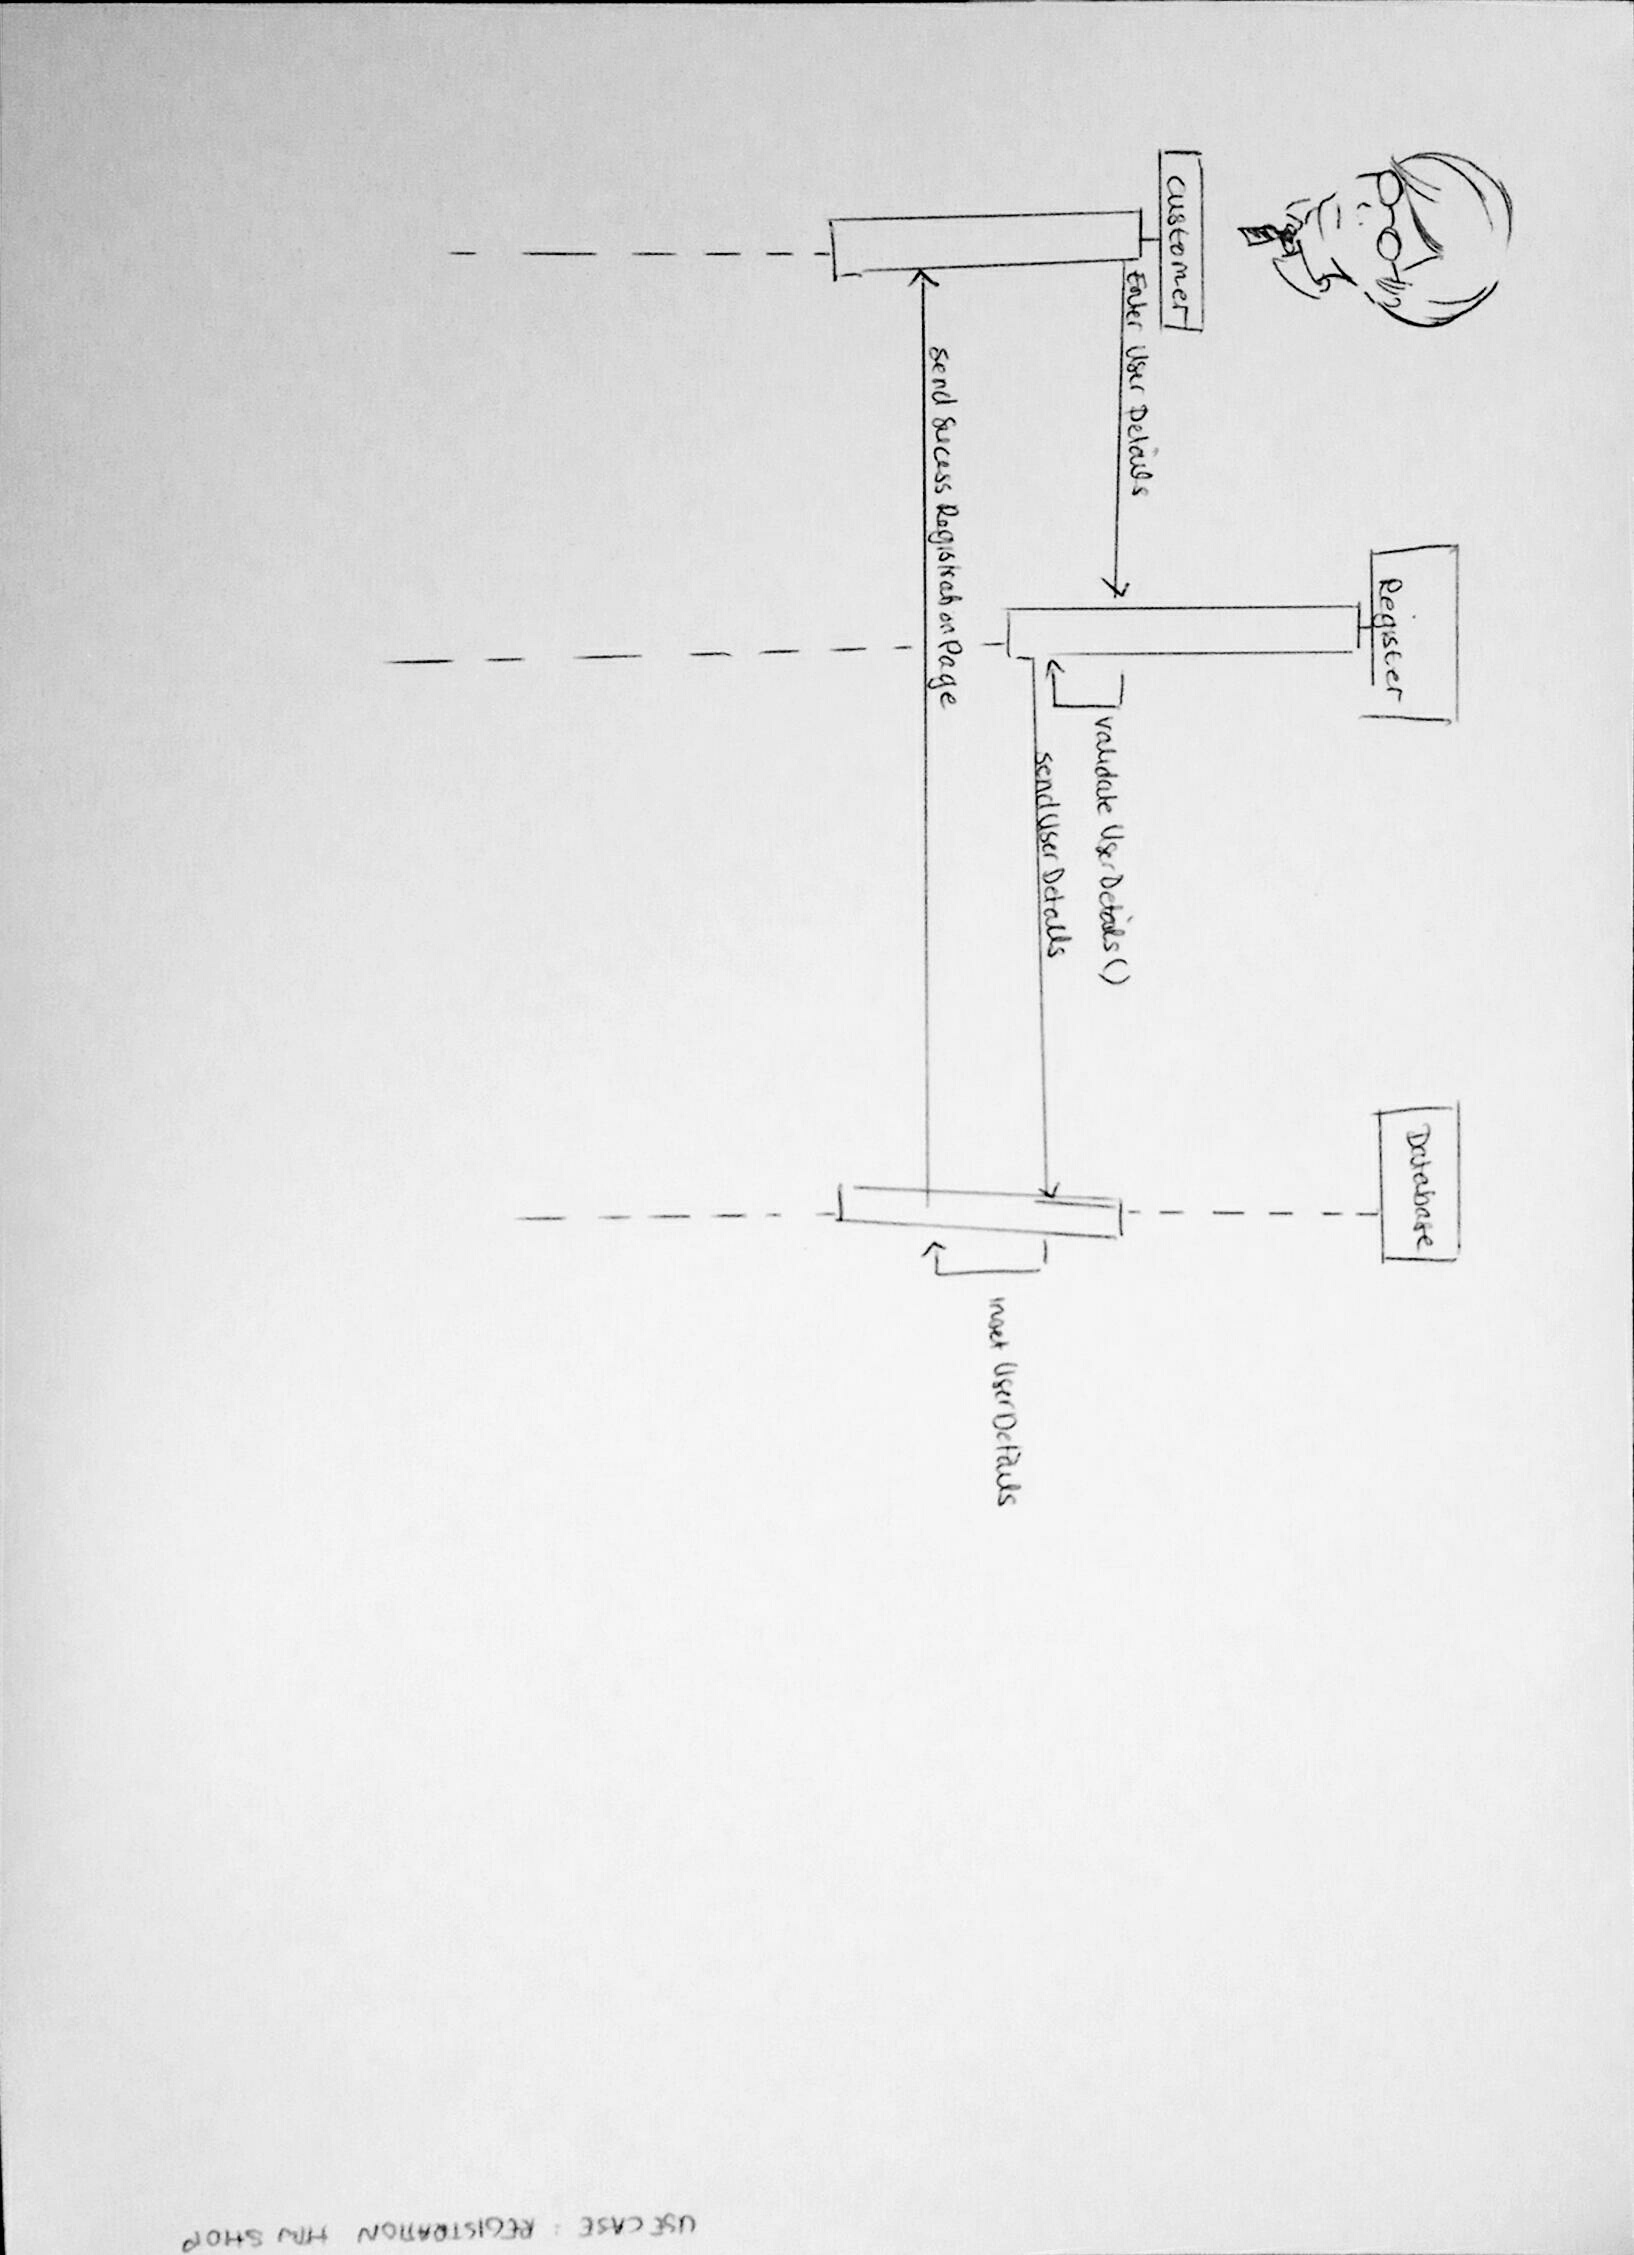 Register
Database
Customer
Enter User Details
validate UserDetails()
send User Details
Inset UserDetails
send Sucess Registration Page
USE CASE : REGISTRATION HTW SHOP